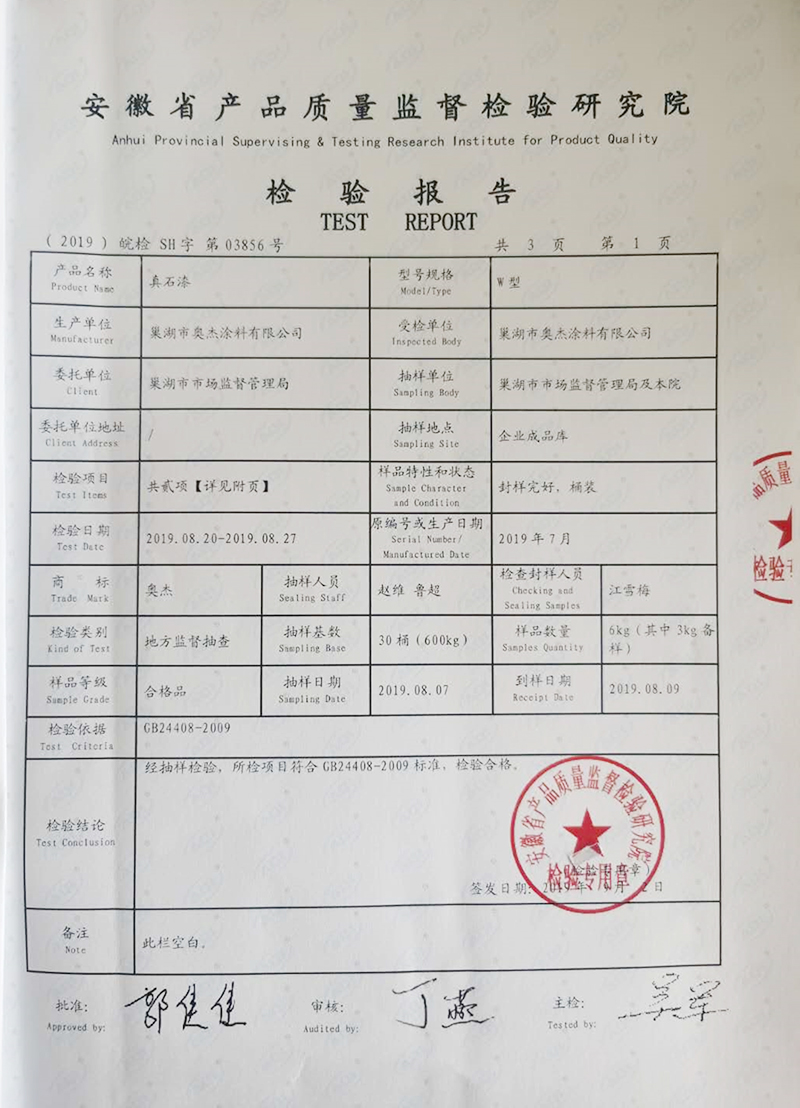 安徽省产品质量监督检验研究院
Anhui Provincial Supervising & Testing Research Institute for Product Quality
检验报告
TEST REPORT
(2019) 皖检 SH字 第03856号 共 3 页 第 1 页
产品名称 真石漆 型号规格 W型
Product Name Model/Type
生产单位 巢湖市奥杰涂料有限公司 受检单位 巢湖市奥杰涂料有限公司
Manufacturer Inspected Body
委托单位 巢湖市市场监督管理局 抽样单位 巢湖市市场监督管理局及本院
Client Sampling Body
委托单位地址 / 抽样地点 企业成品库
Client Address Sampling Site
检验项目 共贰项【详见附页】 样品特性和状态 封样完好，桶装
Test Items Sample Character
and Condition
检验日期 2019.08.20-2019.08.27 原编号或生产日期 2019年7月
Test Date Serial Number/
Manufactured Date
商 标 奥杰 抽样人员 赵维 鲁超 检查封样人员 江雪梅
Trade Mark Sealing Staff Checking and
Sealing Samples
检验类别 地方监督抽查 抽样基数 30桶（600kg） 样品数量 6kg（其中3kg备
样）
Kind of Test Sampling Base Samples Quantity
样品等级 合格品 抽样日期 2019.08.07 到样日期 2019.08.09
Sample Grade Sampling Date Receipt Date
检验依据 GB24408-2009
Test Criteria
经抽样检验，所检项目符合GB24408-2009标准，检验合格。
检验结论
Test Conclusion
安徽省产品质量监督检验研究院
检验专用章
签发日期:
备注 此栏空白。
Note
批准: 郭佳佳 审核: 丁燕 主检:
Approved by: Audited by: Tested by:
质量
检验